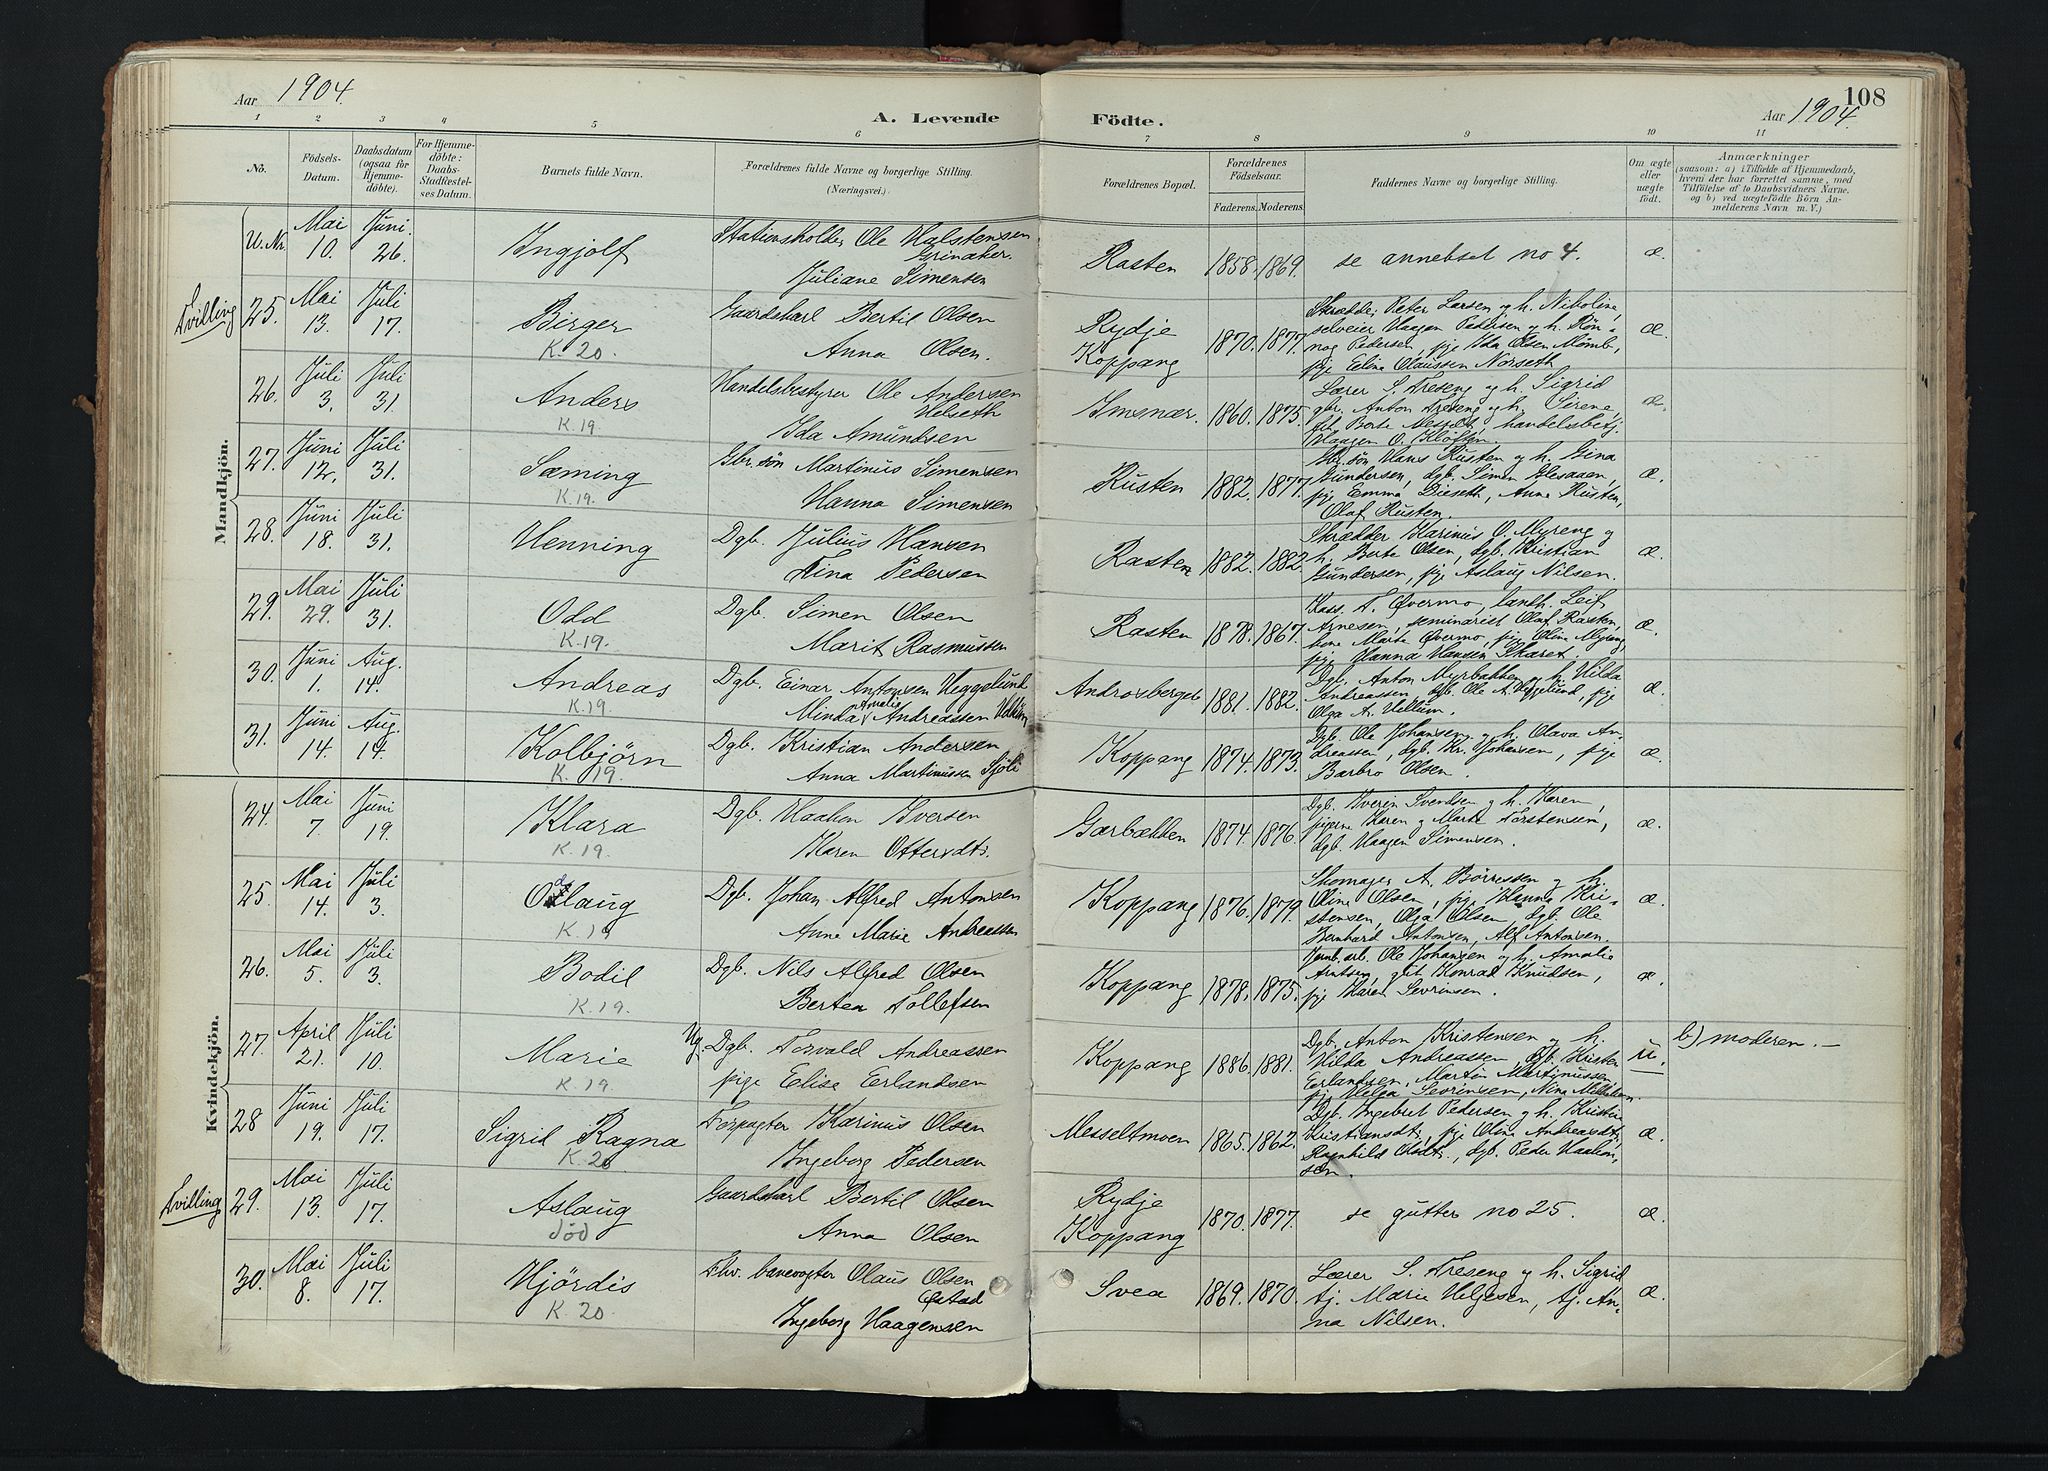 Aar 1904.
A. Levende Födte.
Aar 1904.
108
1 2 3 4 5 6 7 8 9 10 11
No.
Födsels-Datum.
Daabsdatum (ogsaa for Hjemmedöbte).
For Hjemmedöbte: Daabs-Stadfæstelses Datum.
Barnets fulde Navn.
Forældrenes fulde Navne og borgerlige Stilling. (Næringsvei.)
Forældrenes Bopæl.
Forældrenes Födselsaar.
Faderens. Moderens.
Faddernes Navne og borgerlige Stilling.
Om ægte eller uægte födt.
Anmærkninger
(saasom: a) i Tilfælde af Hjemmedaab, hvem der har forrettet samme, med Tilföielse af to Daabsvidners Navne, og b) ved uægtefödte Börn Anmelderens Navn m. V.)
Mandkjön.
U. Nr. Mai 10. Juni 26. Ingjolf
Stationsholder Ole Halstensen Grinaker.
Juliane Simensen
Rasten 1858. 1869. se annetset no 4. æ.
Tvilling 25. Mai 13. Juli 17. Birger
K. 20.
Gaardskarl Bertil Olsen
Anna Olsen.
Rydje Koppang 1870. 1877.
Skrædder Peter Larsen og h. Nikoline,
selveier Haagen Pedersen og h. Rön-
nog Pedersen, pige Ida Olsen Momb,
pige Elina Olaussen Norseth
æ.
26. Juli 3. Juli 31. Anders
K. 19.
Handelsbestyrer Ole Andersen
Ida Amundsen
Imsnær. 1860. 1875.
Lærer S. Treseng og h. Sigrid
gbr. Anton Treseng og h. Sirene,
handelsbetj.
Haagen O. Kloften.
æ.
27. Juni 12. Juli 31. Sæming
K. 19.
Gbr. sön Martinus Simensen
Hanna Simensen
Rusten 1882. 1877.
Gbr. sön Hans Rusten og h. Gina
Gundersen, dgb. Simen
pige Emma Dieseth, Anna Rusten,
Olaf Rusten.
æ.
28. Juni 18. Juli 31. Henning
Dgb. Julius Hansen
Tina Pedersen
Rasten 1882. 1882
Skrædder Karinius O. Myreng og
h. Berte Olsen, dgb. Kristian
Gundersen, pige Aslaug Nilsen.
æ.
29. Mai 29. Juli 31. Odd
K. 19.
Dgb. Simen Olsen
Marit Rasmussen
Rasten 1878. 1867.
Kass. T. Øvermo, landh. Leif
Arnesen, seminarist Olaf Rasten,
Marte Øvermo, pige Oline Myreng,
pige Hanna Hansen Skaret.
æ.
30. Juni 1. Aug. 14. Andreas
K. 19
Dgb. Einar Antonsen Heggelund
Minda Amalie Andreassen
Androsberget 1881. 1882.
Dgb. Anton Myrbakken og h. Hilda
Andreassen, dgb. Ole A. Heggelund, pige
Olga A. Hellum.
æ.
31. Juni 14. Aug. 14. Kolbjörn
K. 19.
Dgb. Kristian Andersen
Anna Martinussen Sjöli
Koppang 1874. 1873.
Dgb. Ole Johansen og h. Olava An-
dreassen, dgb. Kr. Johansen, pige
Barbro Olsen.
æ.
Kvindekjön.
24. Mai 7. Juni 19. Klara
K. 19.
Dgb. Haakon Iversen
Karen Ottersdtr.
Garbækken 1874. 1876.
Dgb. Iverin Svendsen og h. Karen,
pigerne Karen og Marte Torstensen,
dgb. Haagen Simensen.
æ.
25. Mai 14. Juli 3. Oddlaug
K. 19
Dgb. Johan Alfred Antonsen
Anne Marie Andreassen
Koppang 1876. 1879.
Skomager A. Börressen og h.
Oline Olsen, pige Hanna Kri-
stensen, Olga Olsen, dgb. Ole
Bernhard Antonsen, Alf Antonsen.
æ.
26. Mai 5. Juli 3. Bodil
K. 19.
Dgb. Nils Alfred Olsen
Bertea Tollefsen
Koppang 1878. 1875.
Jernb. arb. Ole Johansen og h. Amalie
Arntsen, gut Konrad Knudsen,
pige Karen Sevrinsen.
æ.
27. April 21. Juli 10. Marie
K. 19.
Ug. Dgb. Torvald Andreassen
pige Elise Erlandsen
Koppang 1886. 1881.
Dgb. Anton Kristensen og h.
Hilda Andreassen, dgb. Kristen
Erlandsen, Martin Martinussen
pige Helga Sevrinsen, Nina
u.
b) moderen. —
28 Juni 19. Juli 17. Sigrid Ragna
K. 20
Forpagter Karinus Olsen
Ingeborg Pedersen
Messeltmoen 1865. 1862.
Dgb. Ingebret Pedersen og h. Kristi
Kristiansdtr., pige Oline Andreasdtr.
Ragnhild Olsdtr., dgb. Peder Haakon-
sen.
æ.
Tvilling 29. Mai 13. Juli 17. Aslaug
död
Gaardskarl Bertil Olsen
Anna Olsen
Rydje Koppang 1870. 1877. se gutter no 25. æ.
30. Mai 8. Juli 17. Hjördis
K. 20
Fhv. banevogter Olaus Olsen Østad
Ingeborg Haagensen
Svea 1869. 1870.
Lærer S. Treseng og h. Sigrid
tj. Marie Helgesen, tj. An-
na Nilsen.
æ.